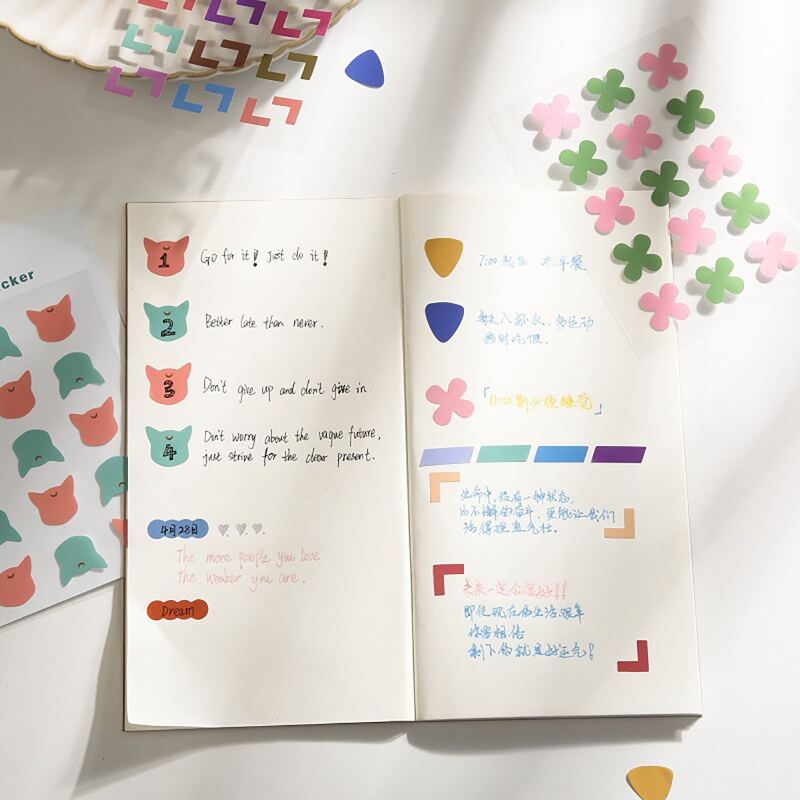 cker
1
Go for it! Just do it!
2
Better late than never.
3
Don't give up and don't give in.
4
Don't worry about the vague future,
just strive for the clear present.
4月28日
The more people you love
The weaker you are.
Dream
7:00起床 吃早餐
每天八杯水,多运动
按时吃饭.
「11:00前必须睡觉」
生命中,总有一种状态,
以不懈的奋斗,更能让我们
活得理直气壮.
未来一定会很好!!
即使现在的生活艰辛
你要相信
剩下的就是好运气!